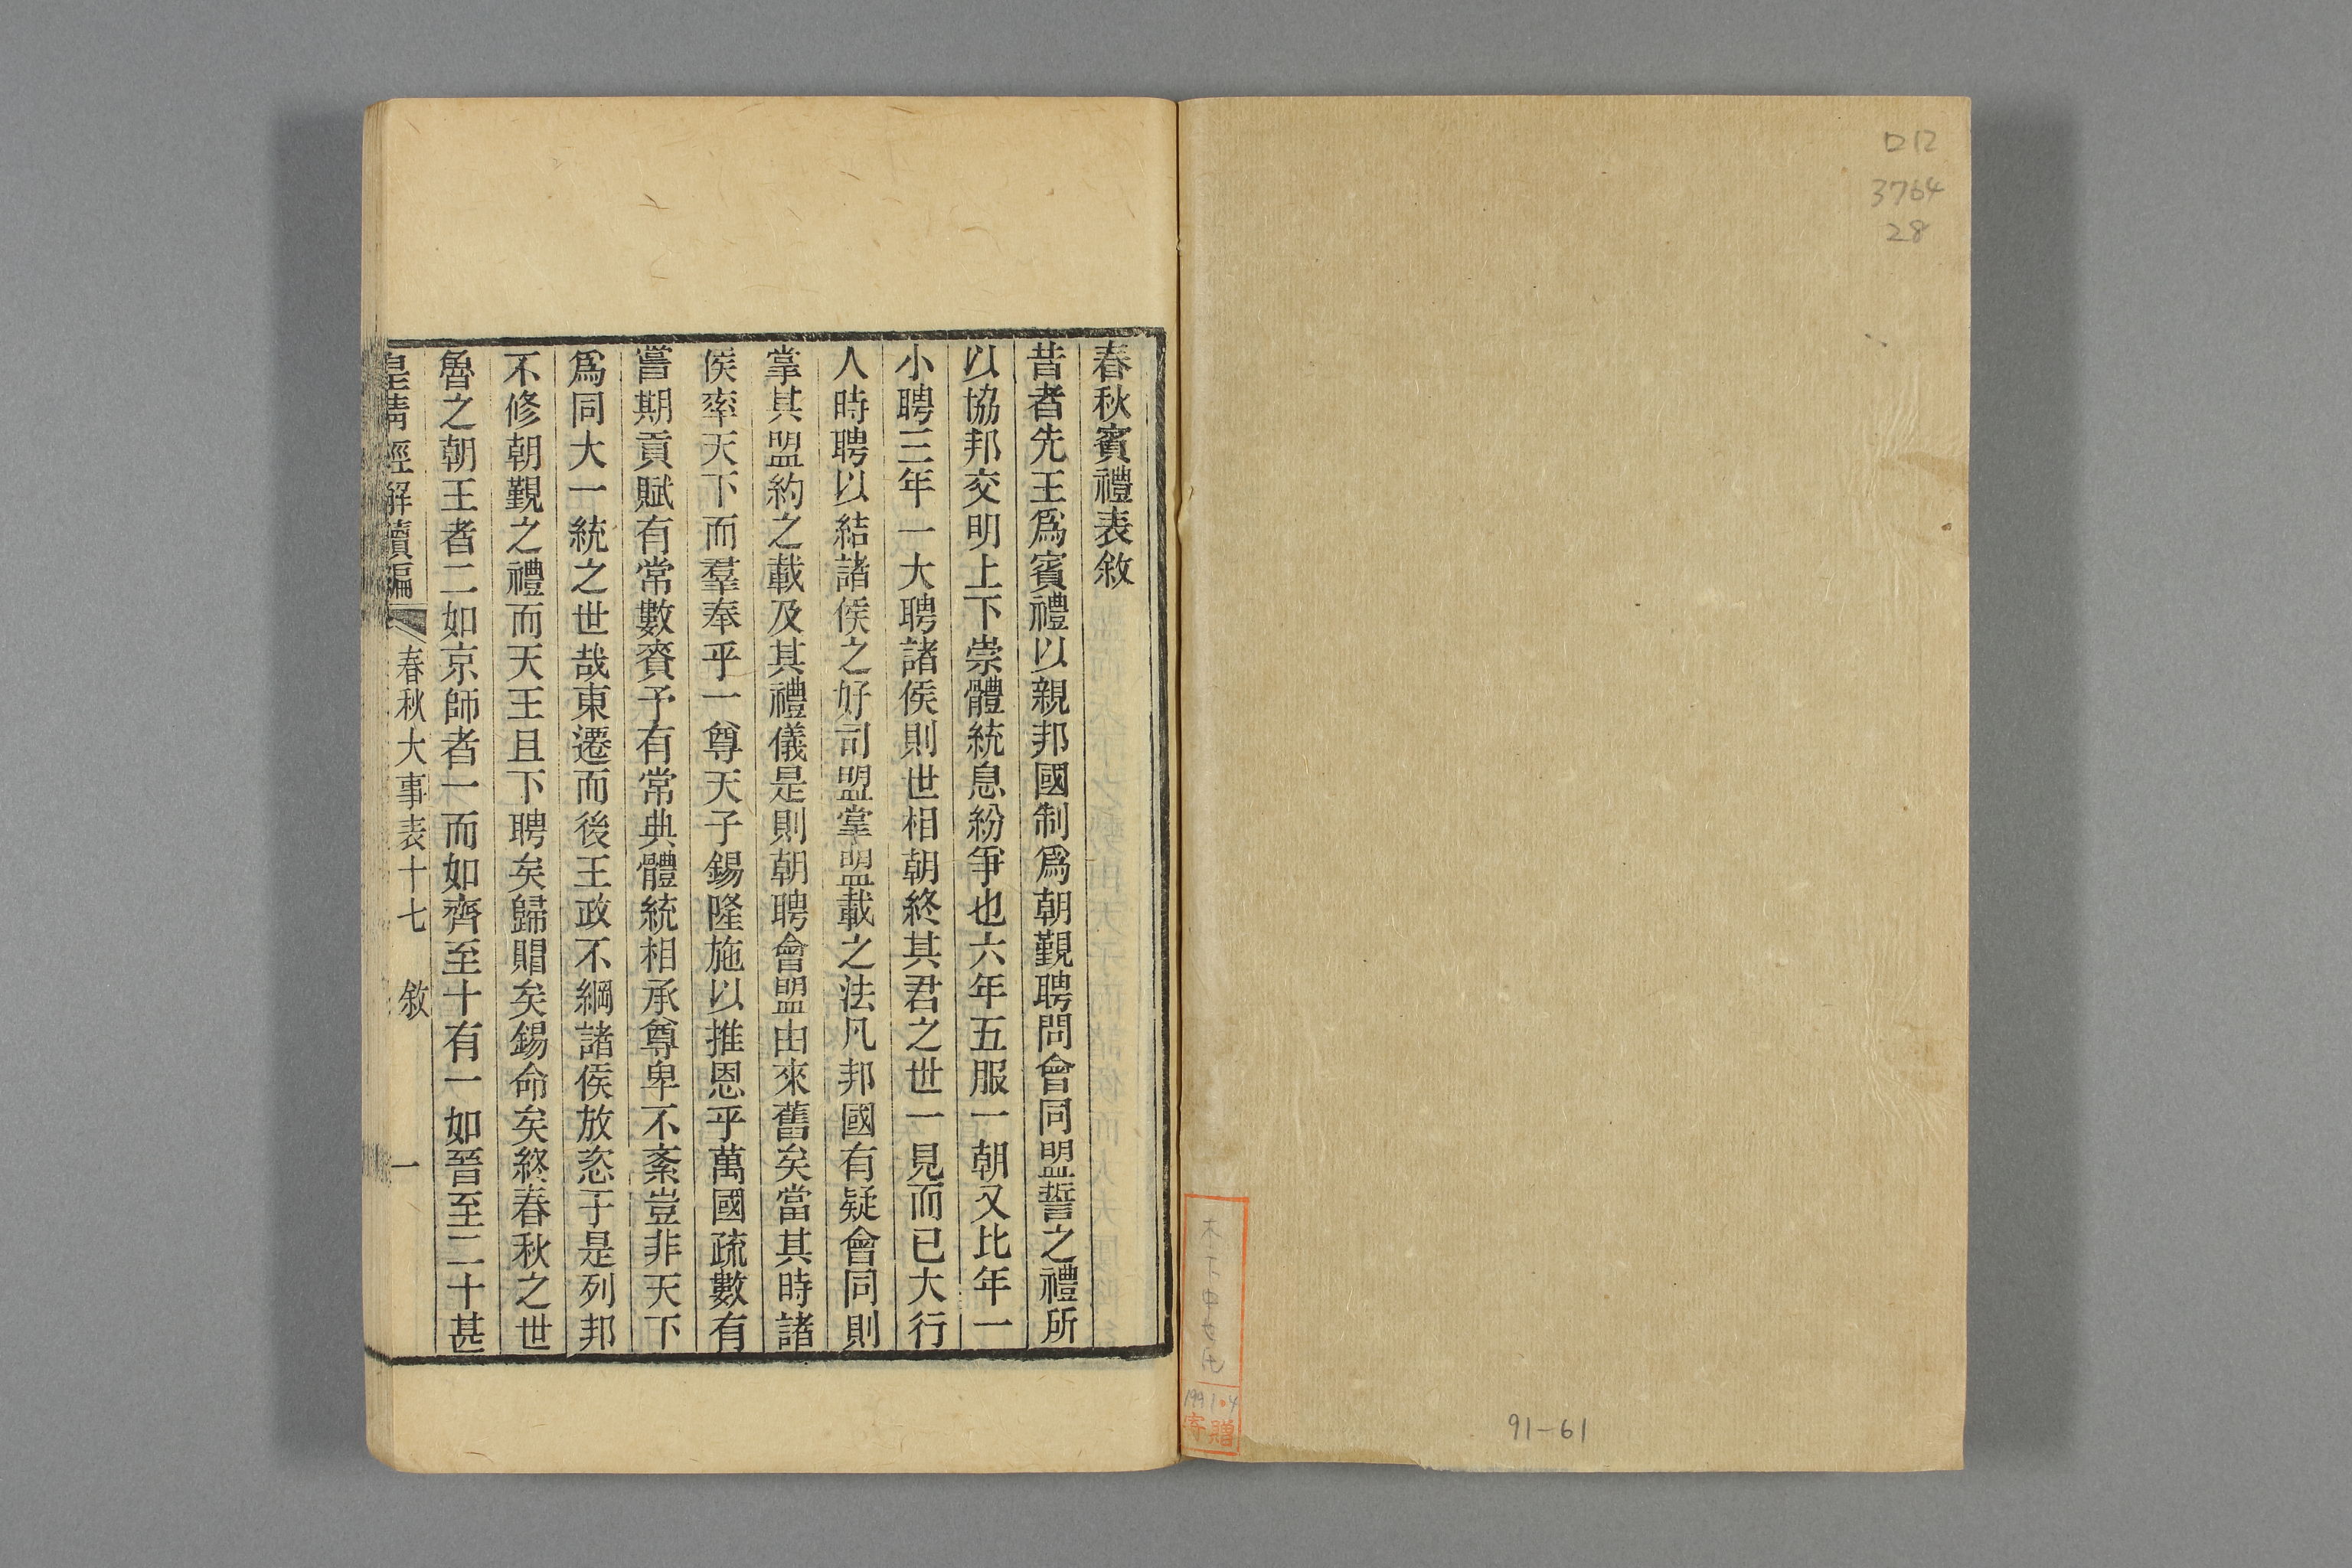 ロ12
3764
28
91-61
木下
1991.4
寄贈
春秋賓禮表敘
昔者先王爲賓禮以親邦國制爲朝覲聘問會同盟誓之禮所
以協邦交明上下崇體統息紛爭也六年五服一朝又比年一
小聘三年一大聘諸侯則世相朝終其君之世一見而已大行
人時聘以結諸侯之好司盟掌盟載之法凡邦國有疑會同則
掌其盟約之載及其禮儀是則朝聘會盟由來舊矣當其時諸
侯率天下而羣奉乎一尊天子錫隆施以推恩乎萬國疏數有
嘗期貢賦有常數賚予有常典體統相承尊卑不紊豈非天下
爲同大一統之世哉東遷而後王政不綱諸侯放恣于是列邦
不修朝覲之禮而天王且下聘矣歸賵矣錫命矣終春秋之世
魯之朝王者二如京師者一而如齊至十有一如晉至二十甚
皇清經解續編 春秋大事表十七 敘 一